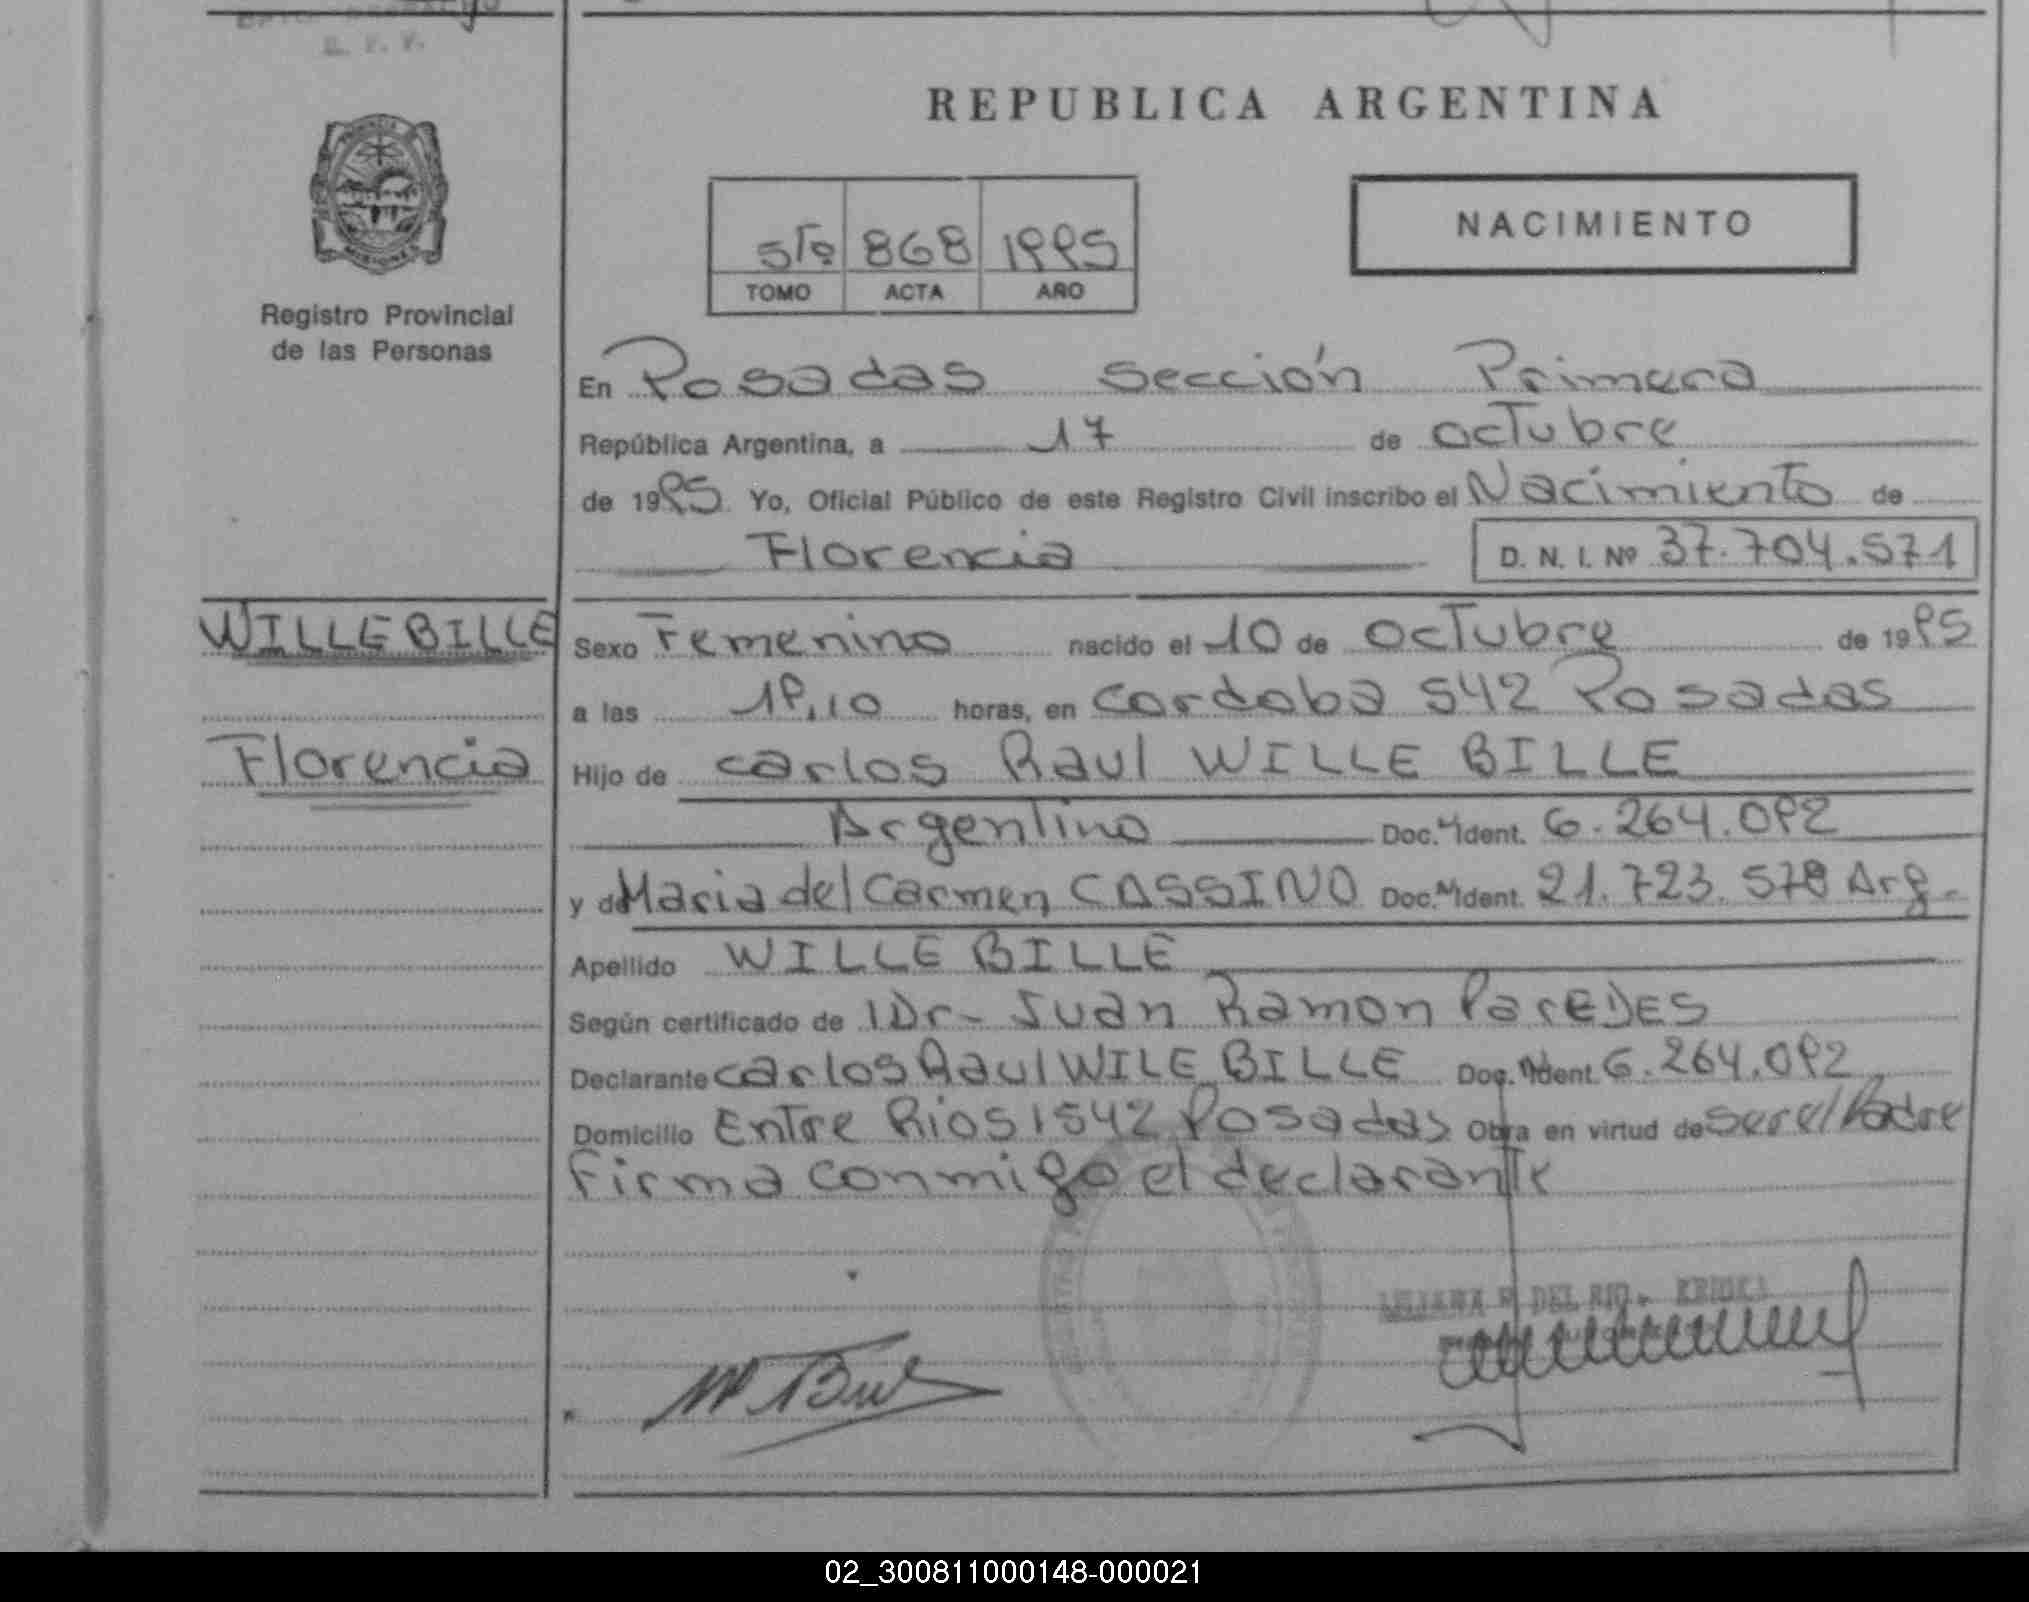 REPUBLICA ARGENTINA
NACIMIENTO
5to 868 1995
TOMO ACTA AÑO
PROVINCIA
MISIONES
Registro Provincial
de las Personas
En Posadas Sección Primera
República Argentina, a 17 de octubre
de 1995. Yo, Oficial Público de este Registro Civil inscribo el Nacimiento de
Florencia D. N. I. Nº 37.704.571
WILLE BILLE
Florencia
Sexo Femenino nacido el 10 de octubre de 1995
a las 19,10 horas, en cordoba 542 Posadas
Hijo de carlos Raul WILLE BILLE
Argentino Doc. Ident. 6.264.092
y de Maria del Carmen CASSINO Doc. Ident. 21.723.578 Arg.
Apellido WILLE BILLE
Según certificado de 1 Dr- Juan Ramon ParEDES
Declarante carlos Raul WILE BILLE Doc. Ident. 6.264.092
Domicilio Entre Rios 1542 Posadas Obra en virtud de ser el Padre
Firma conmigo el declarante
DEL RIO
02_300811000148-000021